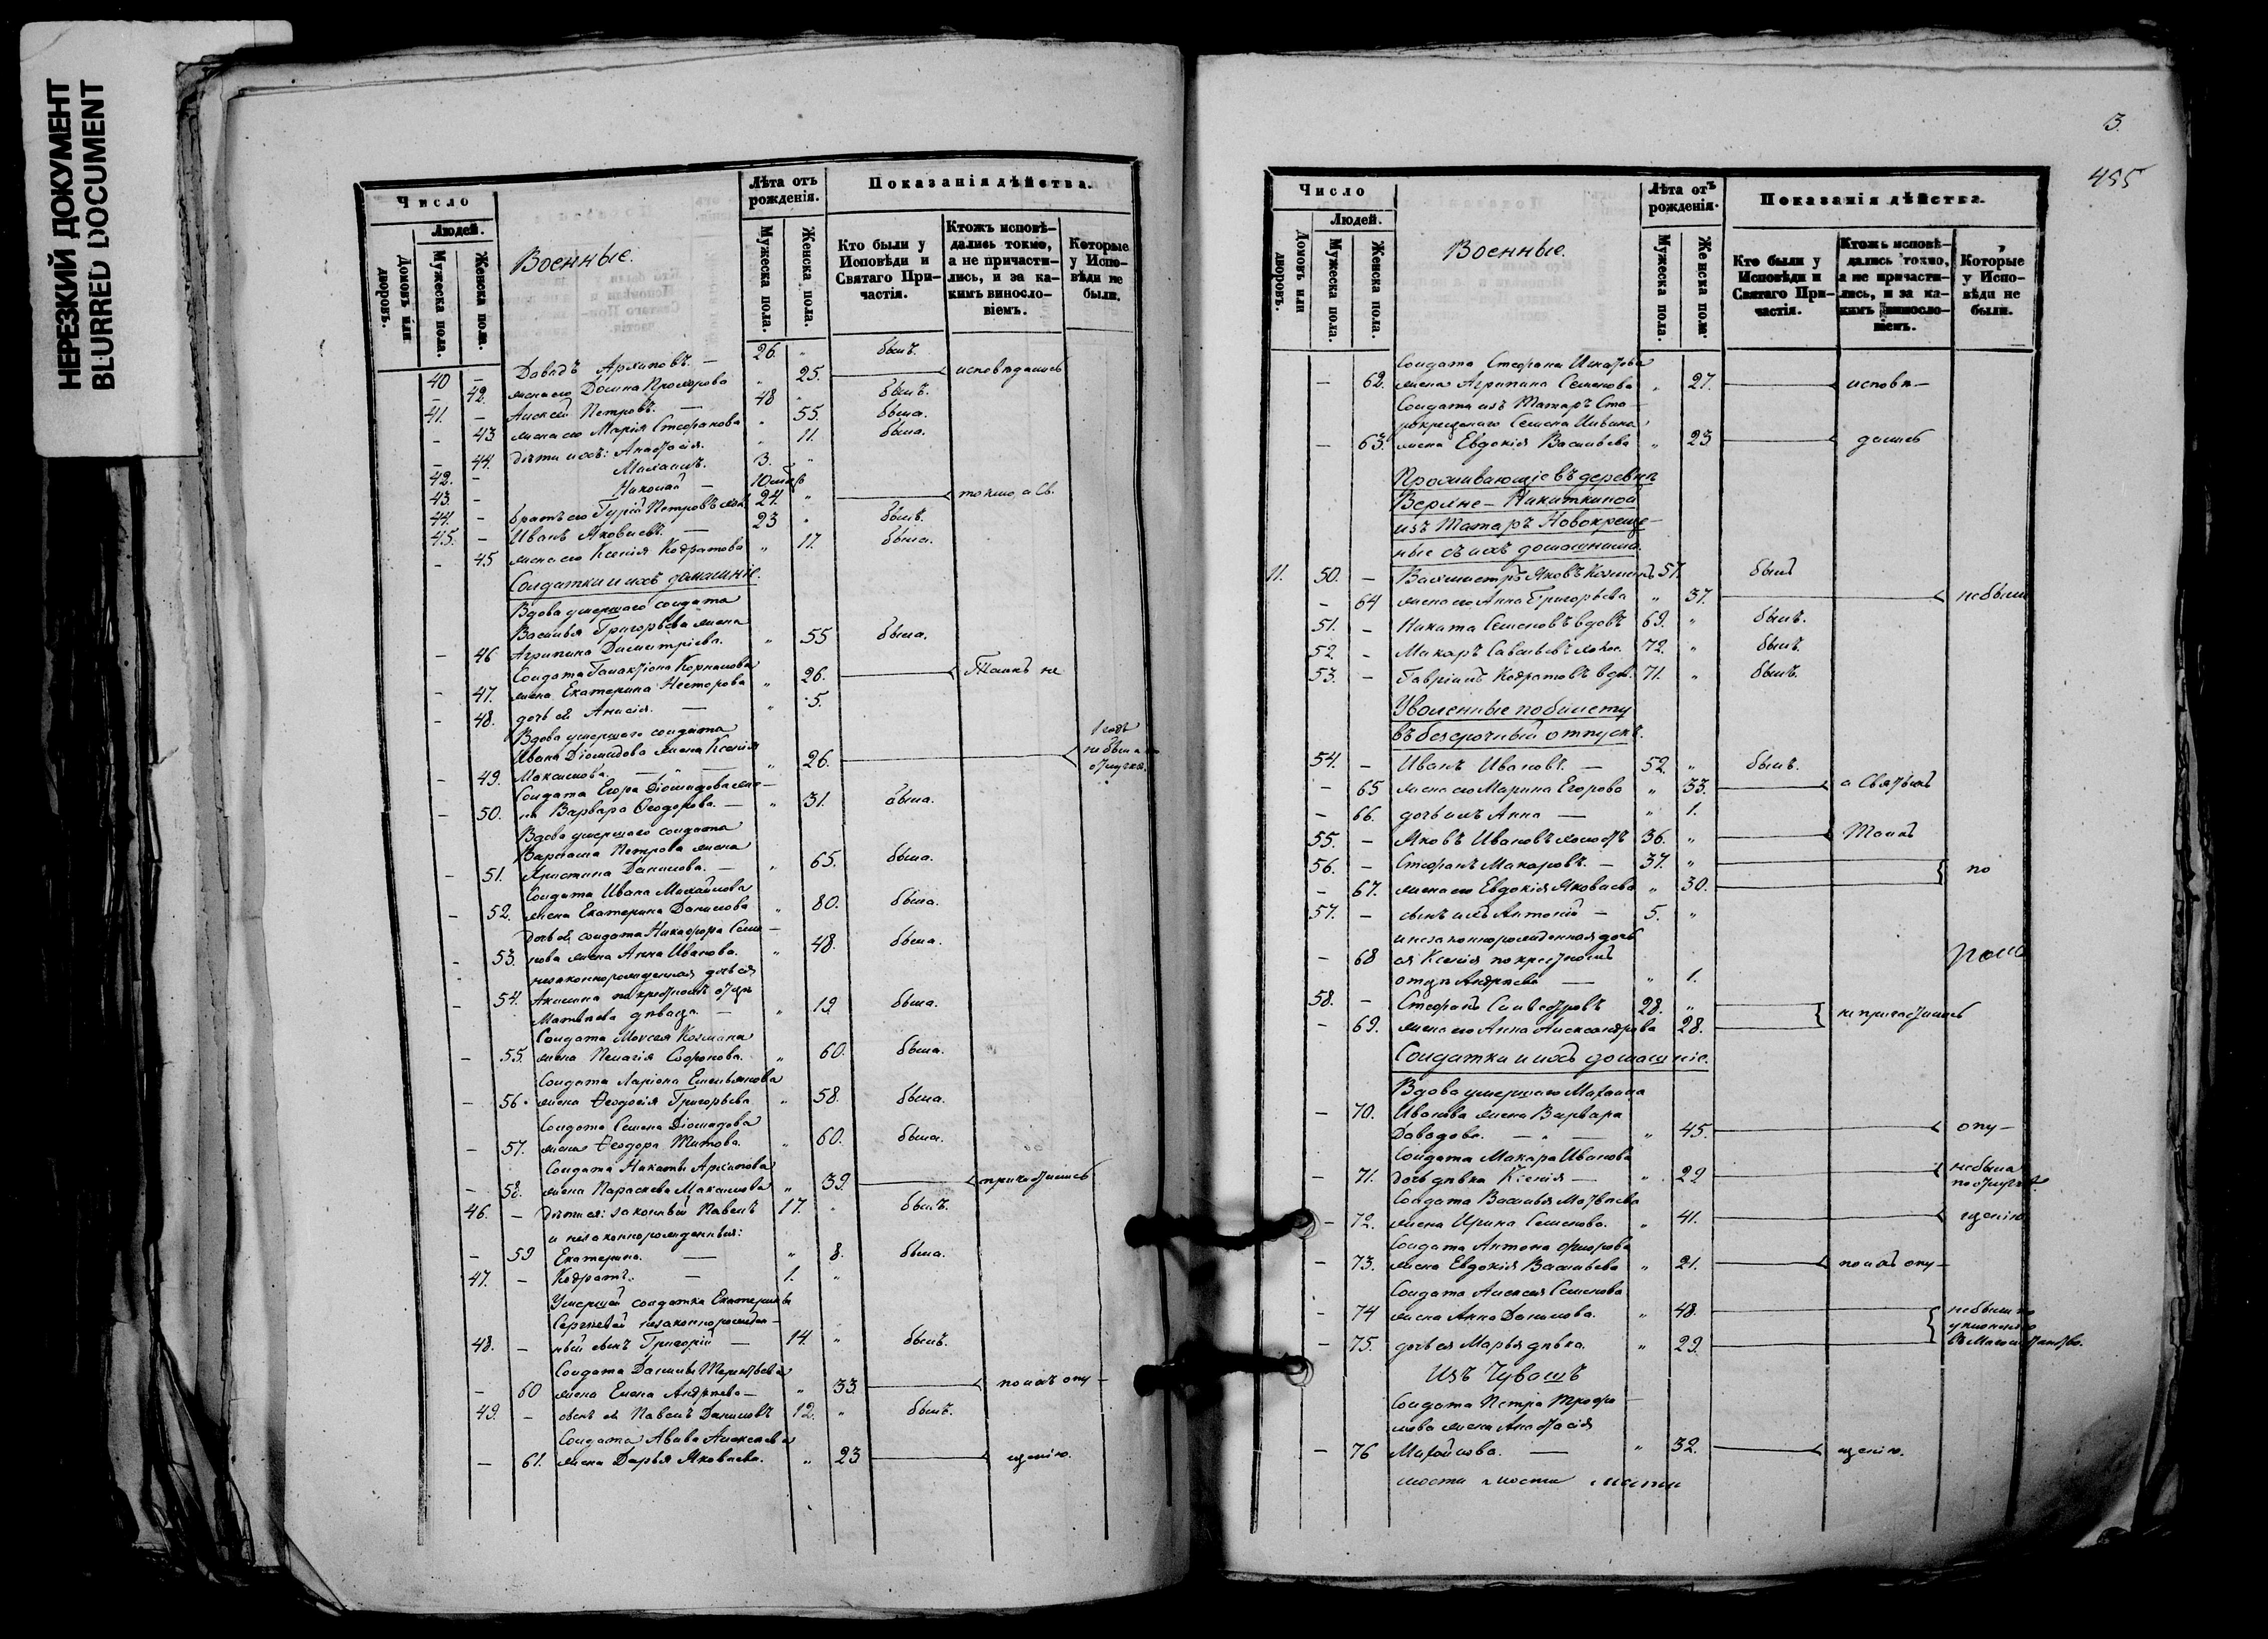 НЕРЕЗКИЙ ДОКУМЕНТ
BLURRED DOCUMENT
Число
Людей.
Домовъ или дворовъ.
Мужеска пола.
Женска пола.
Военные.
Лѣта отъ рожденія.
Мужеска пола.
Женска пола.
Показанія дѣйства.
Кто были у Исповѣди и Святаго Причастія.
Ктожъ исповѣдались токмо, а не причастились, и за какимъ винословіемъ.
Которые у Исповѣди не были.
40 - Давидъ Архиповъ. - 26. " былъ.
- 42. жена его Домна Прохорова " 25. исповѣдались
41. - Алексѣй Петровъ. - 48 " былъ.
- 43 жена его Марія Стефанова " 55. была.
- 44. дѣти ихъ: Анастасія. " 11. была.
42. - Михаилъ. 3. "
43 - Николай -
44. - братъ его Гурій Петровъ 24. " токмо, а Св.
45. - Иванъ Яковлевъ. - 23 " былъ.
- 45 жена его Ксенія Кодратова " 17. была.
Солдатки и ихъ домашніе.
Вдова умершаго солдата
Василья Григорьева жена
- 46 Агрипина Димитріева. " 55 была.
Солдата Галактіона Корнилова
- 47. жена Екатерина Несторова " 26. Таинъ не
- 48. дочь ея Анисія. - " 5.
Вдова умершаго солдата
Ивана Діомидова жена Ксенія
- 49. Максимова. - " 26. не была по отлучкѣ.
Солдата Егора Діомидова же-
- 50. на Варвара Ѳеодорова. - " 31. была.
Вдова умершаго солдата
Варлама Петрова жена
- 51. Христина Данилова. - " 65. была.
Солдата Ивана Михайлова
- 52. жена Екатерина Данилова " 80. была.
Дочь ея, солдата Никифора Семе-
- 53. нова жена Анна Иванова. " 48. была.
незаконнорожденная дочь ея
- 54. Акилина по крестномъ отцѣ
Матвѣева дѣвица. - " 19. была.
Солдата Моисея Козмина
- 55. жена Пелагія Софронова. " 60. была.
Солдата Ларіона Емельянова
- 56. жена Ѳеодосія Григорьева " 58. была.
Солдата Семена Діомидова
- 57. жена Ѳеодора Титова. " 60. была.
Солдата Никиты Архипова
- 58. жена Параскева Максимова " 39. причастились
46. - дѣти ея: законный Павелъ 17. " былъ.
и незаконнорожденныя:
- 59 Екатерина. - " 8. была.
47. - Кодратъ. - 1. "
Умершей солдатки Екатерины
Сергѣевой незаконнорожден-
48. - ный сынъ Григорій - 14. " былъ.
Солдата Данилы Терентьева
- 60 жена Елена Андрѣева - " 33. по ихъ опу-
49. - сынъ ея Павелъ Даниловъ 12. " былъ.
Солдата Авива Алексѣева
- 61. жена Дарья Яковлева. " 23 щенію.
3.
455
Число
Людей.
Домовъ или дворовъ.
Мужеска пола.
Женска пола.
Военные.
Лѣта отъ рожденія.
Мужеска пола.
Женска пола.
Показанія дѣйства.
Кто были у Исповѣди и Святаго Причастія.
Ктожъ исповѣдались токмо, а не причастились, и за какимъ винословіемъ.
Которые у Исповѣди не были.
Солдата Стефана
- 62. жена Агрипина Семенова " 27. исповѣ-
Солдата изъ Татаръ Ста-
рокрещенаго Семена
- 63. жена Евдокія Васильева " 23 дались
Проживающіе въ деревнѣ
Верхне-Никиткиной
изъ Татаръ Новокреще-
ные съ ихъ домашними.
11. 50. - Вахмистръ Яковъ Козминъ 57. былъ
- 64 жена его Анна Григорьева " 37. не были
51. - Никита Семеновъ вдовъ 69. " былъ.
52. - Макаръ Савельевъ холос. 72. " былъ.
53. - Гавріилъ Кодратовъ вдов. 71. " былъ.
Уволенные по билету
въ безсрочный отпускъ.
54. - Иванъ Ивановъ. - 52. " былъ.
- 65 жена его Марина Егорова " 33. а Святыхъ
- 66. дочь ихъ Анна - " 1.
55. - Яковъ Ивановъ холостъ 36. " Таинъ
56. - Стефанъ Макаровъ. - 37. "
- 67. жена его Евдокія Яковлева " 30. по
57. - сынъ ихъ Антоній - 5. "
и незаконнорожденная дочь
- 68 ея Ксенія по крестномъ
отцѣ Андрѣева - " 1.
58. - Стефанъ Сильвестровъ 28. "
- 69. жена его Анна Александрова 28. не причастились
Солдатки и ихъ домашніе.
Вдова умершаго Михаила
- 70. Иванова жена Варвара
Давыдова. - " - " 45. опу-
Солдата Макара Иванова
- 71. дочь дѣвка Ксенія - " 22 не была по отлучкѣ.
Солдата Василья Матвѣева
- 72. жена Ирина Семенова. " 41. щенію
Солдата Антона Фролова
- 73. жена Евдокія Васильева " 21. по ихъ опу-
Солдата Алексѣя Семенова
- 74 жена Анна Данилова. " 48. не были по уклоненію
- 75. дочь ея Марья дѣвка. " 29. въ Магометанство.
Изъ Чувашъ
Солдата Петра Трофи-
мова жена Анастасія
- 76 Михайлова. - " 32. щенію.